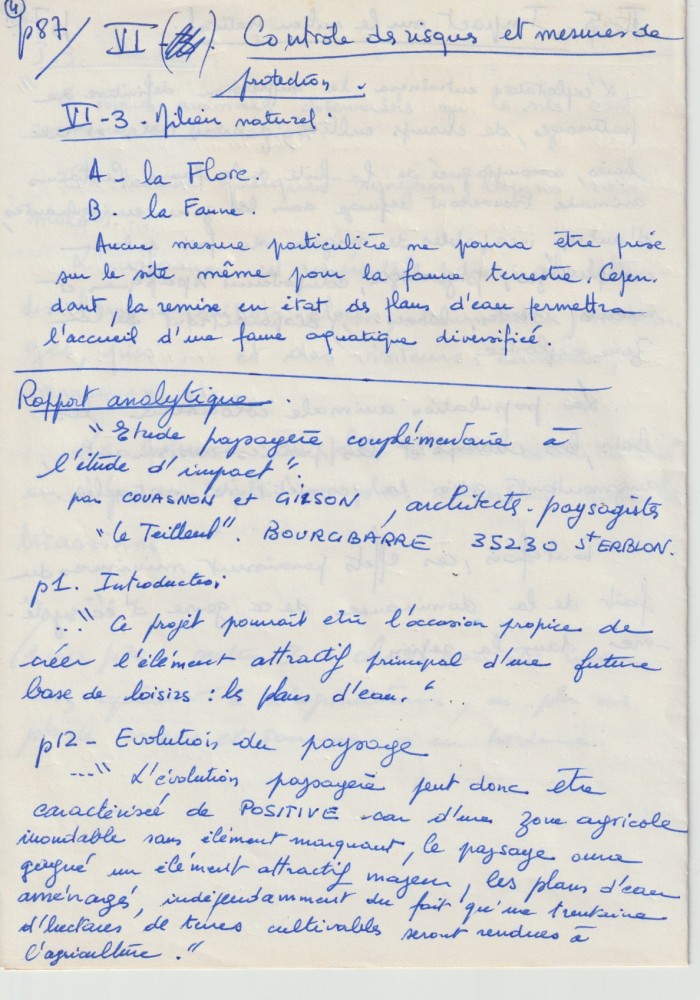 4
p87/ VI - Contrôle des risques et mesures de
protection.
VI-3 - Milieu naturel.
A - la Flore.
B. la Faune.
Aucune mesure particulière ne pourra être prise
sur le site même pour la faune terrestre. Cepen-
dant, la remise en état des plans d'eau permettra
l'accueil d'une faune aquatique diversifiée.
Rapport analytique.
"Etude paysagère complémentaire à
l'étude d'impact".
par COUASNON et GILSON, architectes-paysagistes
"Le Teilleul". BOURGBARRE 35230 St ERBLON.
p1. Introduction
..." Ce projet pourrait être l'occasion propice de
créer l'élément attractif principal d'une future
base de loisirs : les plans d'eau."...
p12 - Evolution du paysage
..." L'évolution paysagère peut donc être
caractérisée de POSITIVE car d'une zone agricole
inondable sans élément marquant, le paysage aura
gagné un élément attractif majeur, les plans d'eau
aménagés, indépendamment du fait qu'une trentaine
d'hectares de terres cultivables seront rendues à
l'agriculture."